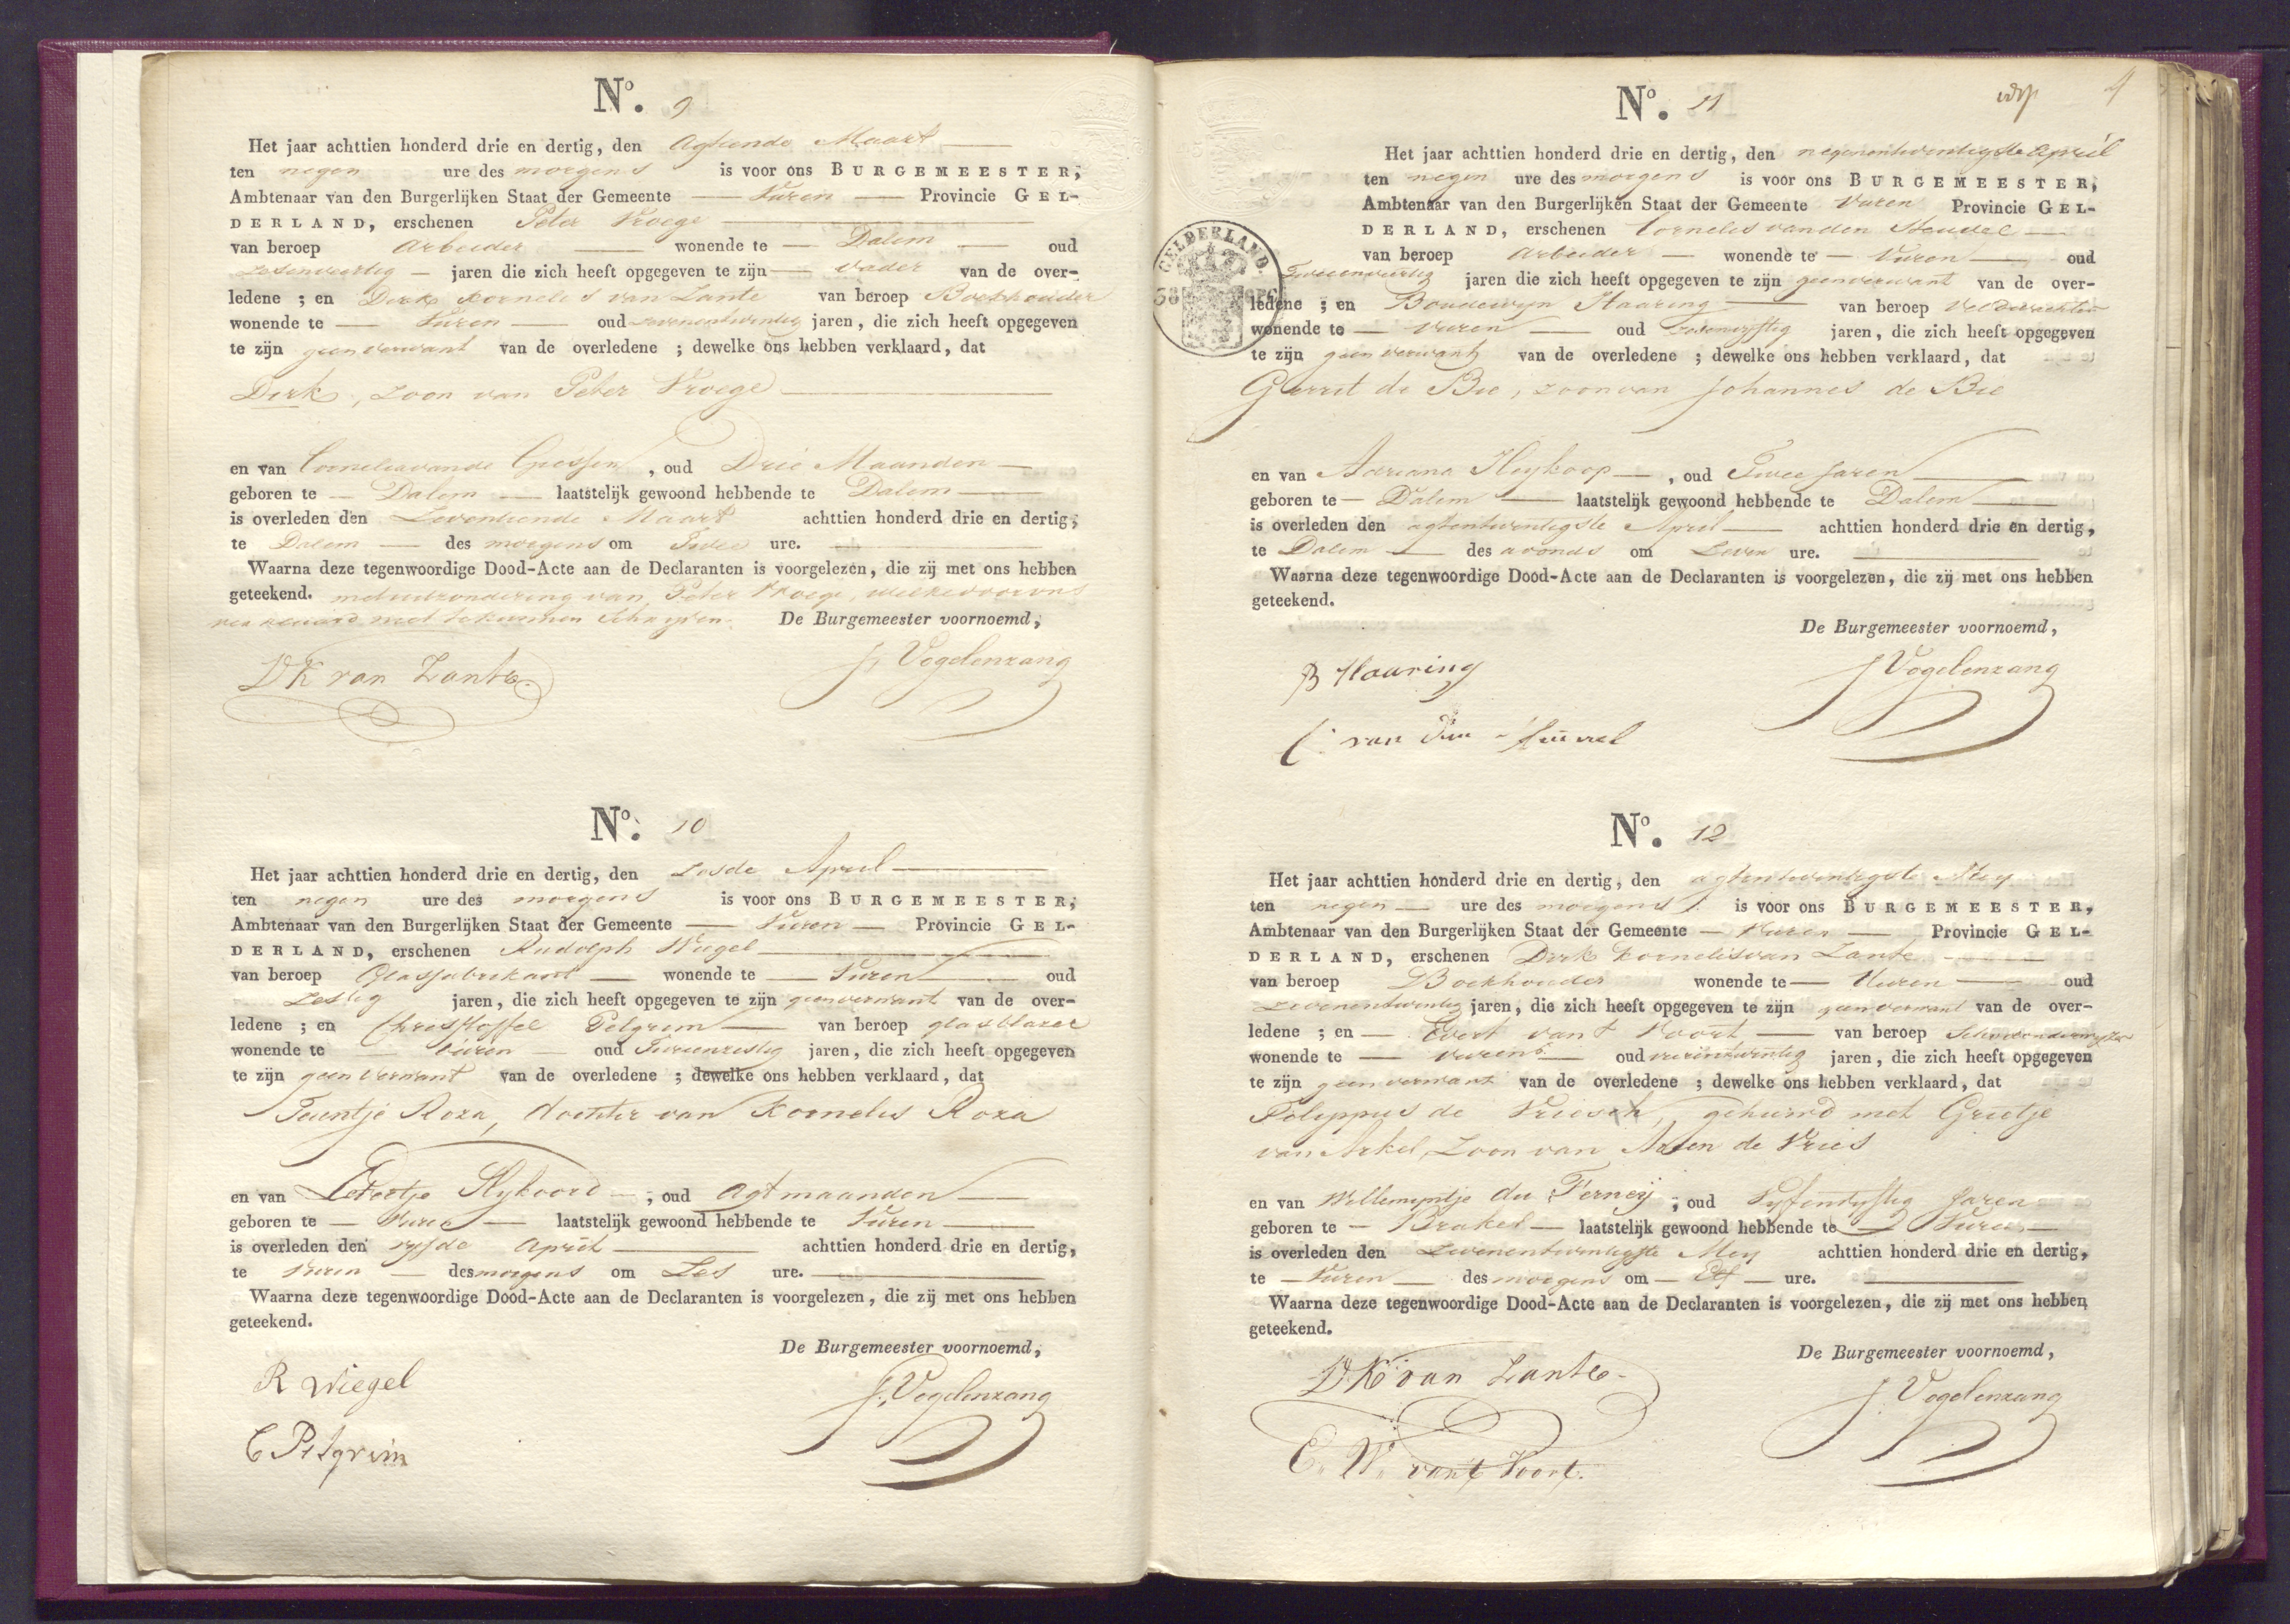 No. 9
Het jaar achttien honderd drie en dertig, den Agtiende Maart
ten negen ure des morgens is voor ons BURGEMEESTER,
Ambtenaar van den Burgerlijken Staat der Gemeente Vuren Provincie GEL-
DERLAND, erschenen Peter Vroege
van beroep Arbeider wonende te Dalem oud
zesenveertig jaren die zich heeft opgegeven te zijn vader van de over-
ledene ; en Dirk Kornelis van Zante van beroep Boekhouder
wonende te Vuren oud zevenentwintig jaren, die zich heeft opgegeven
te zijn geen verwant van de overledene ; dewelke ons hebben verklaard, dat
Dirk, zoon van Peter Vroege
en van Cornelia van de Giessen, oud Drie Maanden
geboren te Dalem laatstelijk gewoond hebbende te Dalem
is overleden den Zeventiende Maart achttien honderd drie en dertig,
te Dalem des morgens om Twee ure.
Waarna deze tegenwoordige Dood-Acte aan de Declaranten is voorgelezen, die zij met ons hebben
geteekend. met uitzondering van Peter Vroege, welke voor ons
verklaard niet te kunnen Schryven. De Burgemeester voornoemd,
DK van Zante J. Vogelenzang
No. 10
Het jaar achttien honderd drie en dertig, den Zesde April
ten negen ure des morgens is voor ons BURGEMEESTER,
Ambtenaar van den Burgerlijken Staat der Gemeente Vuren Provincie GEL-
DERLAND, erschenen Rudolph Wiegel
van beroep Glasfabrikant wonende te Vuren oud
Zestig jaren, die zich heeft opgegeven te zijn geen verwant van de over-
ledene ; en Christoffel Pelgrim van beroep glasblazer
wonende te Vuren oud Tweeenzestig jaren, die zich heeft opgegeven
te zijn geen verwant van de overledene ; dewelke ons hebben verklaard, dat
Teuntje Roza, dochter van Kornelis Roza
en van Slykoord, oud Agt maanden
geboren te Vuren laatstelijk gewoond hebbende te Vuren
is overleden den vyfde April achttien honderd drie en dertig,
te Vuren des morgens om Zes ure.
Waarna deze tegenwoordige Dood-Acte aan de Declaranten is voorgelezen, die zij met ons hebben
geteekend.
De Burgemeester voornoemd,
R Wiegel J. Vogelenzang
C Pelgrim
4
No. 11
GELDERLAND.
Het jaar achttien honderd drie en dertig, den negenentwintigste April
ten negen ure des morgens is voor ons BURGEMEESTER,
Ambtenaar van den Burgerlijken Staat der Gemeente Vuren Provincie GEL-
DERLAND, erschenen Cornelis van den Heuvel
van beroep Arbeider wonende te Vuren oud
Tweeenveertig jaren die zich heeft opgegeven te zijn geen verwant van de over-
ledene ; en Boudewyn Haaring van beroep Veldwachter
wonende te Vuren oud jaren, die zich heeft opgegeven
te zijn geen verwant van de overledene ; dewelke ons hebben verklaard, dat
Gerrit de Bie, zoon van Johannes de Bie
en van Adriana Heykoop, oud Twee Jaren
geboren te Dalem laatstelijk gewoond hebbende te Dalem
is overleden den agtentwintigste April achttien honderd drie en dertig,
te Dalem des avonds om Zeven ure.
Waarna deze tegenwoordige Dood-Acte aan de Declaranten is voorgelezen, die zij met ons hebben
geteekend.
De Burgemeester voornoemd,
B Haaring J Vogelenzang
C van den Heuvel
No. 12
Het jaar achttien honderd drie en dertig, den agtentwintigste Mey
ten negen ure des morgens is voor ons BURGEMEESTER,
Ambtenaar van den Burgerlijken Staat der Gemeente Vuren Provincie GEL-
DERLAND, erschenen Dirk Kornelis van Zante
van beroep Boekhouder wonende te Vuren oud
zevenentwintig jaren, die zich heeft opgegeven te zijn geen verwant van de over-
ledene ; en Evert van t Voort van beroep Schoolonderwyzer
wonende te Vuren oud jaren, die zich heeft opgegeven
te zijn geen verwant van de overledene ; dewelke ons hebben verklaard, dat
Filippus de gehuwd met Grietje
van Arkel, Zoon van Arien de Vries
en van Willemyntje du Ferney, oud Vyfenvyftig Jaren
geboren te Brakel laatstelijk gewoond hebbende te Vuren
is overleden den Zevenentwintigste Mey achttien honderd drie en dertig,
te Vuren des morgens om Elf ure.
Waarna deze tegenwoordige Dood-Acte aan de Declaranten is voorgelezen, die zij met ons hebben
geteekend.
De Burgemeester voornoemd,
DK van Zante J. Vogelenzang
E. W. van t Voort.